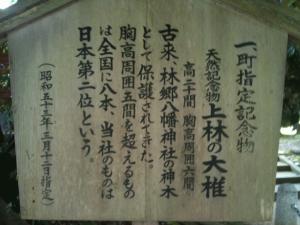 一、町指定記念物
天然記念物 上林の大椎
高二十間 胸高周囲六間
古来、林郷八幡神社の神木
として保護されてきた。
胸高周囲五間を超えるもの
は全国に八本、当社のものは
日本第二位という。
(昭和五十三年三月十二日指定)